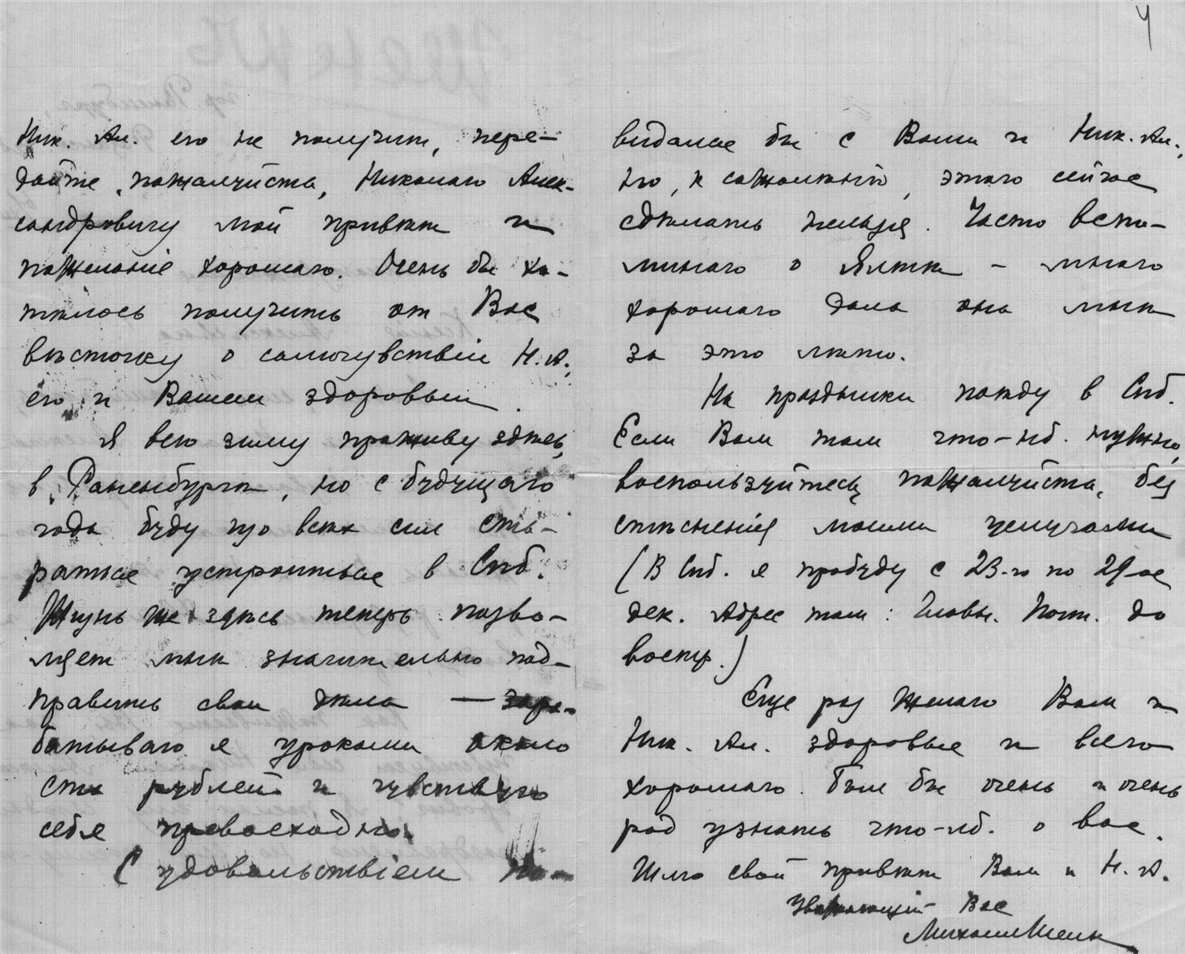 Ник. Ал. его не получит, пере-
дайте, пожалуйста, Николаю Алек-
сандровичу мой привет и
пожеланіе хорошаго. Очень бы хо-
тѣлось получить от Вас
вѣсточку о самочувствіи Н. А.,
его и Вашем здоровьи.
Я всю зиму проживу здѣсь,
в Раненбургѣ, но с будущаго
года буду изо всѣх сил ста-
раться устроиться в Спб.
Жизнь же здѣсь теперь позво-
ляет мнѣ значительно под-
править свои дѣла — зара-
батываю я уроками около
ста рублей и чувствую
себя превосходно.
С удовольствіем по-
4
видался бы с Вами и Ник. Ал.,
но, к сожалѣнію, этого сейчас
сдѣлать нельзя. Часто вспо-
минаю о Ялтѣ – много
хорошаго дала она мнѣ
за это лѣто.
На праздники поѣду в Спб.
Если Вам там что-нб. нужно,
воспользуйтесь, пожалуйста, без
стѣсненія моими услугами
(В Спб. я пробуду с 23-го по 29-ое
дек. Адрес там: Главн. Почт. до
востр.)
Еще раз желаю Вам и
Ник. Ал. здоровья и всего
хорошаго. Был бы очень и очень
рад узнать что-нб. о вас.
Шлю свой привѣт Вам и Н. А.
Уважающій Вас
Михаил